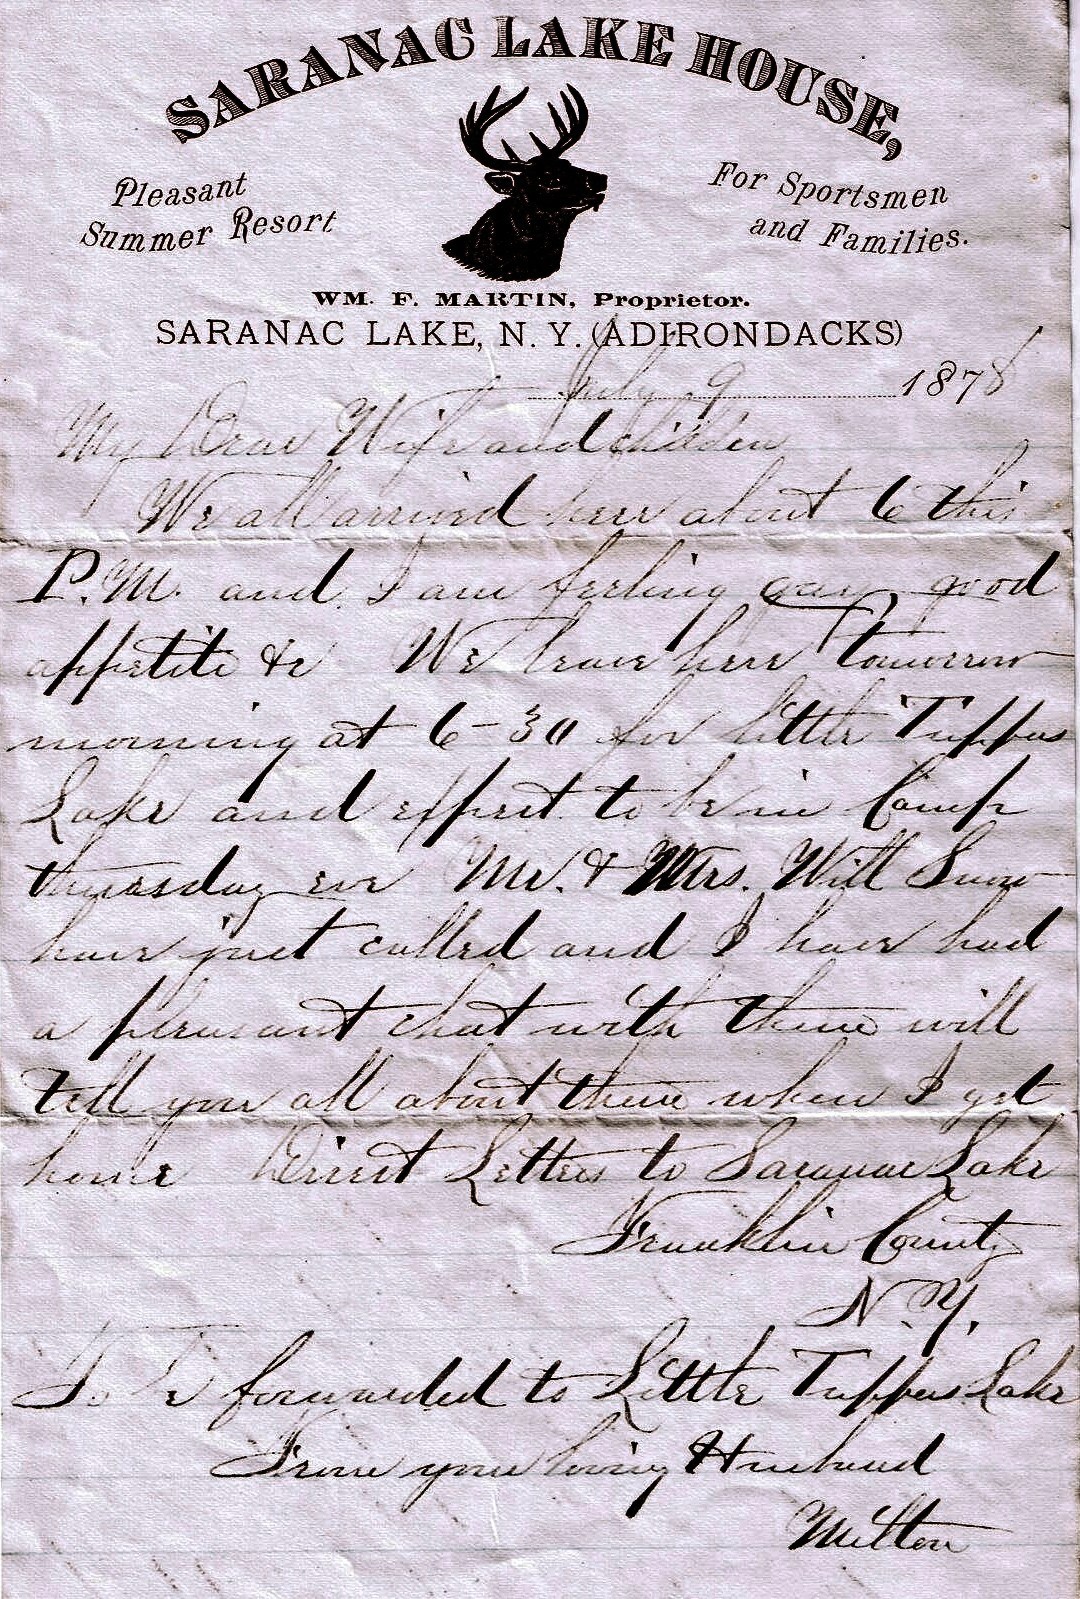 SARANAC LAKE HOUSE,
Pleasant
Summer Resort
For Sportsmen
and Families.
WM. F. MARTIN, Proprietor.
SARANAC LAKE, N. Y. (ADIRONDACKS)
July 9 1878
My Dear Wife and children
We all arrived here about 6 this
P.M. and I am feeling gay, good
appetite &c We leave here tomorrow
morning at 6-30 for little Tuppers
Lake and expect to be in Camp
thursday eve Mr. & Mrs. Will Snow
have just called and I have had
a pleasant chat with them will
tell you all about them when I get
home Direct Letters to Saranac Lake
Franklin County
N.Y.
To Be forwarded to Little Tuppers Lake
From your loving Husband
Milton